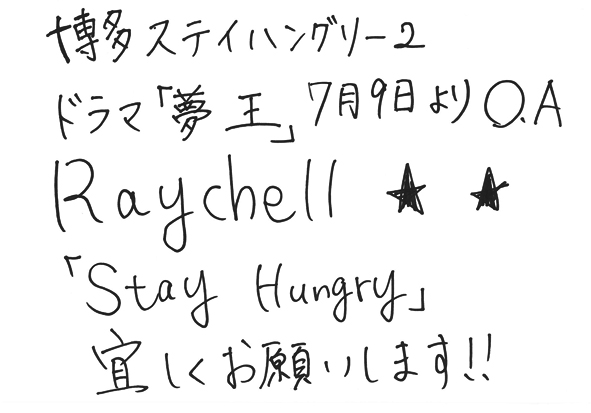 博多ステイハングリー2
ドラマ「夢王」7月9日よりO.A
Raychell ★ ★
「Stay Hungry」
宜しくお願いします!!